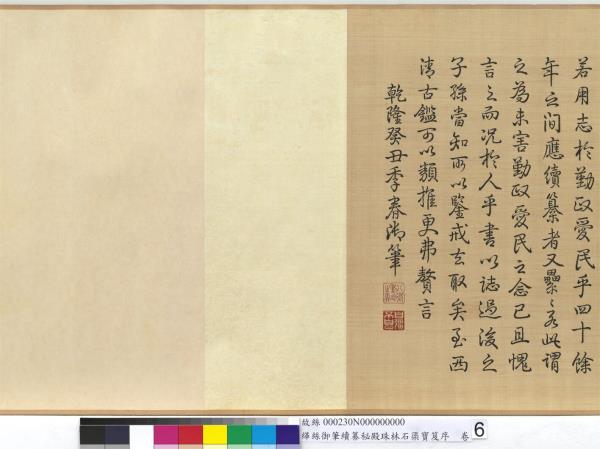 若用志於勤政愛民乎四十餘
年之間應續纂者又纍〻若此謂
之為未害勤政愛民之念已且愧
言之而況於人乎書以誌過後之
子孫當知所以鑒戒去取矣至西
清古鑑可以類推更弗贅言
乾隆癸丑季春御筆
故絲 000230N000000000
緙絲御筆續纂秘殿珠林石渠寶笈序 卷 6